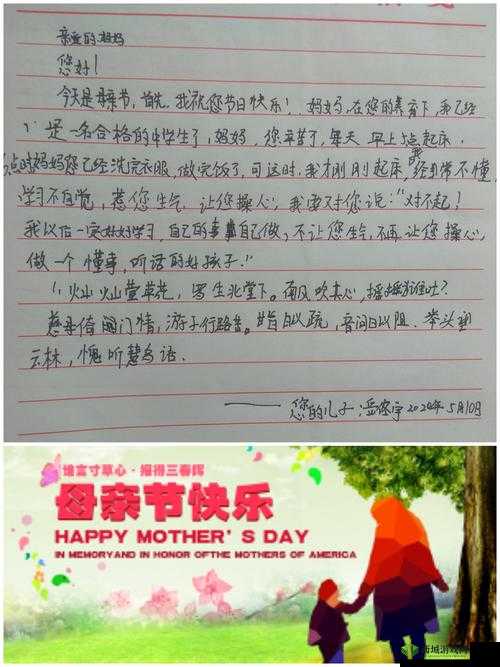 亲爱的妈妈
您好!
今天是母亲节,首先,我祝您节日快乐!妈妈,在您的养育下,我已经
是一名合格的中学生了,妈妈,您辛苦了,每天早上5点起床,
点时妈妈您已经洗完衣服,做完饭了,可这时,我才刚刚起床,我经常不懂,
学习不自觉,惹您生气,让您操心,我要对您说:"对不起!
我以后一定好好学习,自己的事自己做,不让您生气,不再让您操心,
做一个懂事,听话的好孩子."
"灿灿萱草花,罗生北堂下。南风吹其心,摇摇为谁吐?
慈母倚门情,游子行路苦。甘旨日以疏,音问日以阻。举头望
云林,愧听慧鸟语.
——您的儿子 2020年5月10日
谁言寸草心·报得三春晖
母亲节快乐
HAPPY MOTHER'S DAY
IN MEMORYAND IN HONOR OFTHE MOTHERS OF AMERICA